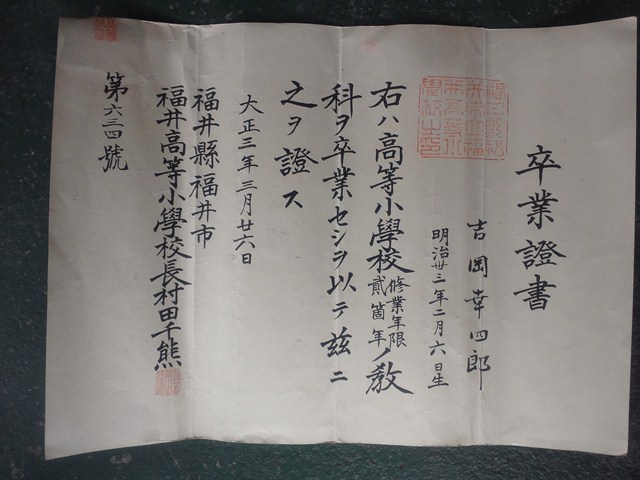 卒業證書
吉岡幸四郎
明治丗三年二月六日生
右ハ高等小學校修業年限貳箇年ノ教
科ヲ卒業セシヲ以テ茲ニ
之ヲ證ス
大正三年三月廿六日
福井縣福井市
福井高等小學校長村田千熊
第六三四號